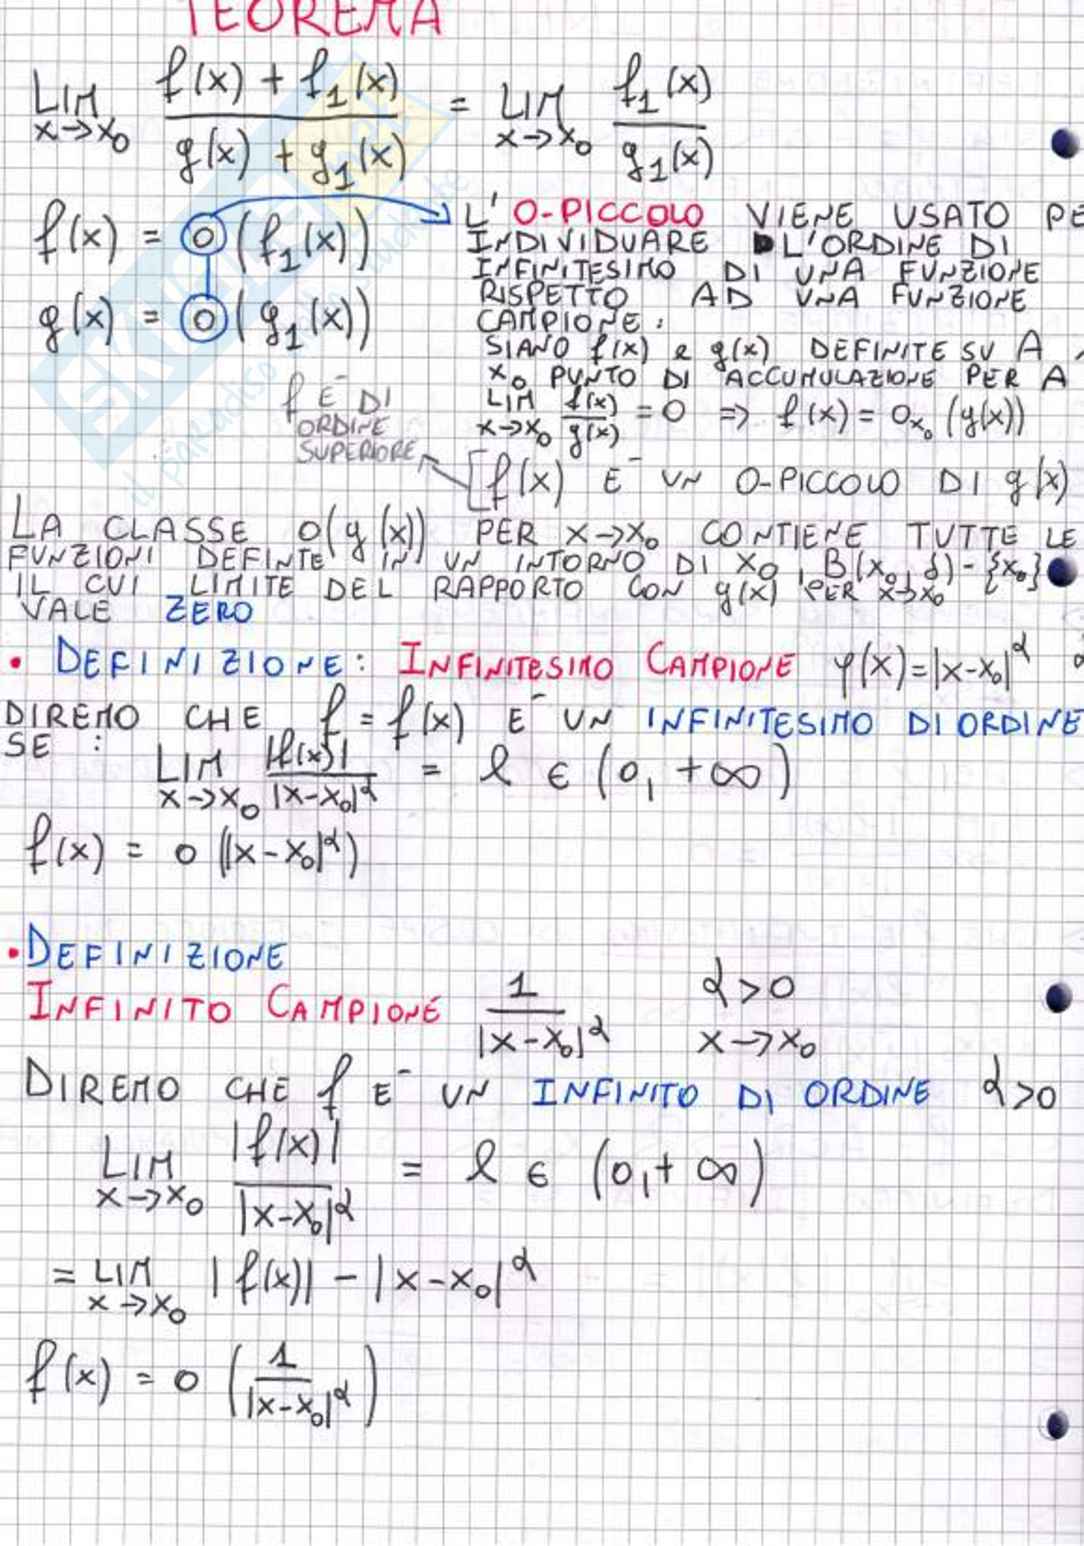 TEOREMA
LIM x→x₀ (f(x) + f₁(x)) / (g(x) + g₁(x)) = LIM x→x₀ f₁(x) / g₁(x)
f(x) = o(f₁(x))
g(x) = o(g₁(x))
L'O-PICCOLO VIENE USATO PE
INDIVIDUARE L'ORDINE DI
INFINITESIMO DI UNA FUNZIONE
RISPETTO AD UNA FUNZIONE
CAMPIONE.
SIANO f(x) e g(x) DEFINITE SU A
x₀ PUNTO DI ACCUMULAZIONE PER A
LIM x→x₀ f(x)/g(x) = 0 ⇒ f(x) = oₓ₀(g(x))
f È DI
ORDINE
SUPERIORE
[f(x) È UN O-PICCOLO DI g(x)
LA CLASSE o(g(x)) PER x→x₀ CONTIENE TUTTE LE
FUNZIONI DEFINTE IN UN INTORNO DI x₀, B(x₀, δ) - {x₀}
IL CUI LIMITE DEL RAPPORTO CON g(x) PER x→x₀
VALE ZERO
• DEFINIZIONE: INFINITESIMO CAMPIONE φ(x)=|x-x₀|^α
DIREMO CHE f = f(x) È UN INFINITESIMO DI ORDINE
SE :
LIM x→x₀ |f(x)| / |x-x₀|^α = l ∈ (0, +∞)
f(x) = o(|x-x₀|^α)
• DEFINIZIONE
INFINITO CAMPIONE 1 / |x-x₀|^α α>0
x→x₀
DIREMO CHE f È UN INFINITO DI ORDINE α>0
LIM x→x₀ |f(x)| / |x-x₀|^α = l ∈ (0,+∞)
= LIM x→x₀ |f(x)| - |x-x₀|^α
f(x) = o(1 / |x-x₀|^α)